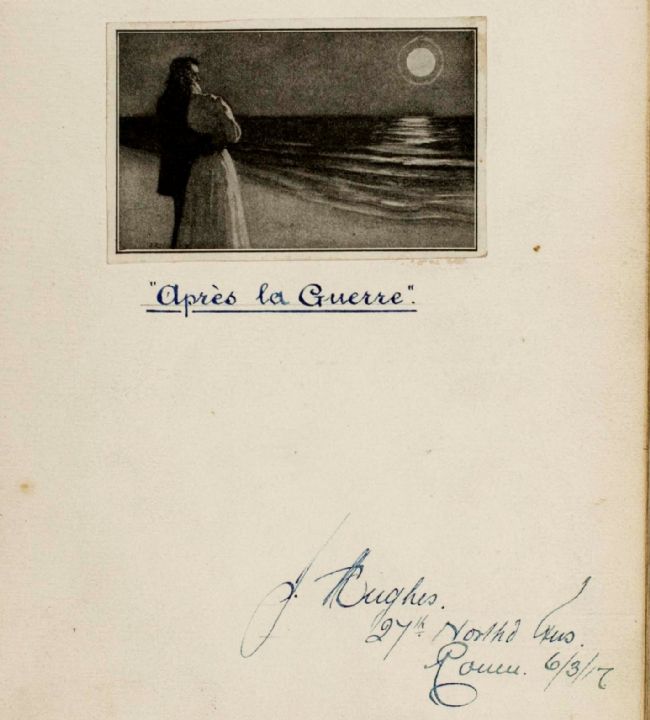 "Après la Guerre".
J. Hughes.
27th North'd Fus.
Rouen. 6/3/17